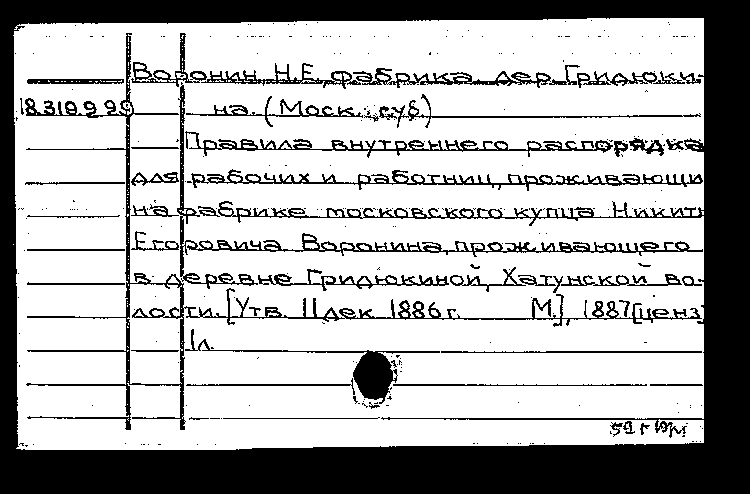 Воронин, Н.Е, фабрика. дер. Гридюки-
18.319.9 99 на. (Моск. губ.)
Правила внутреннего распорядка
для рабочих и работниц, проживающи
на фабрике московского купца Никит
Егоровича Воронина, проживающего
в деревне Гридюкиной, Хатунской во-
лости. [Утв. 11 дек 1886 г. М.], 1887 [ценз]
1 л.